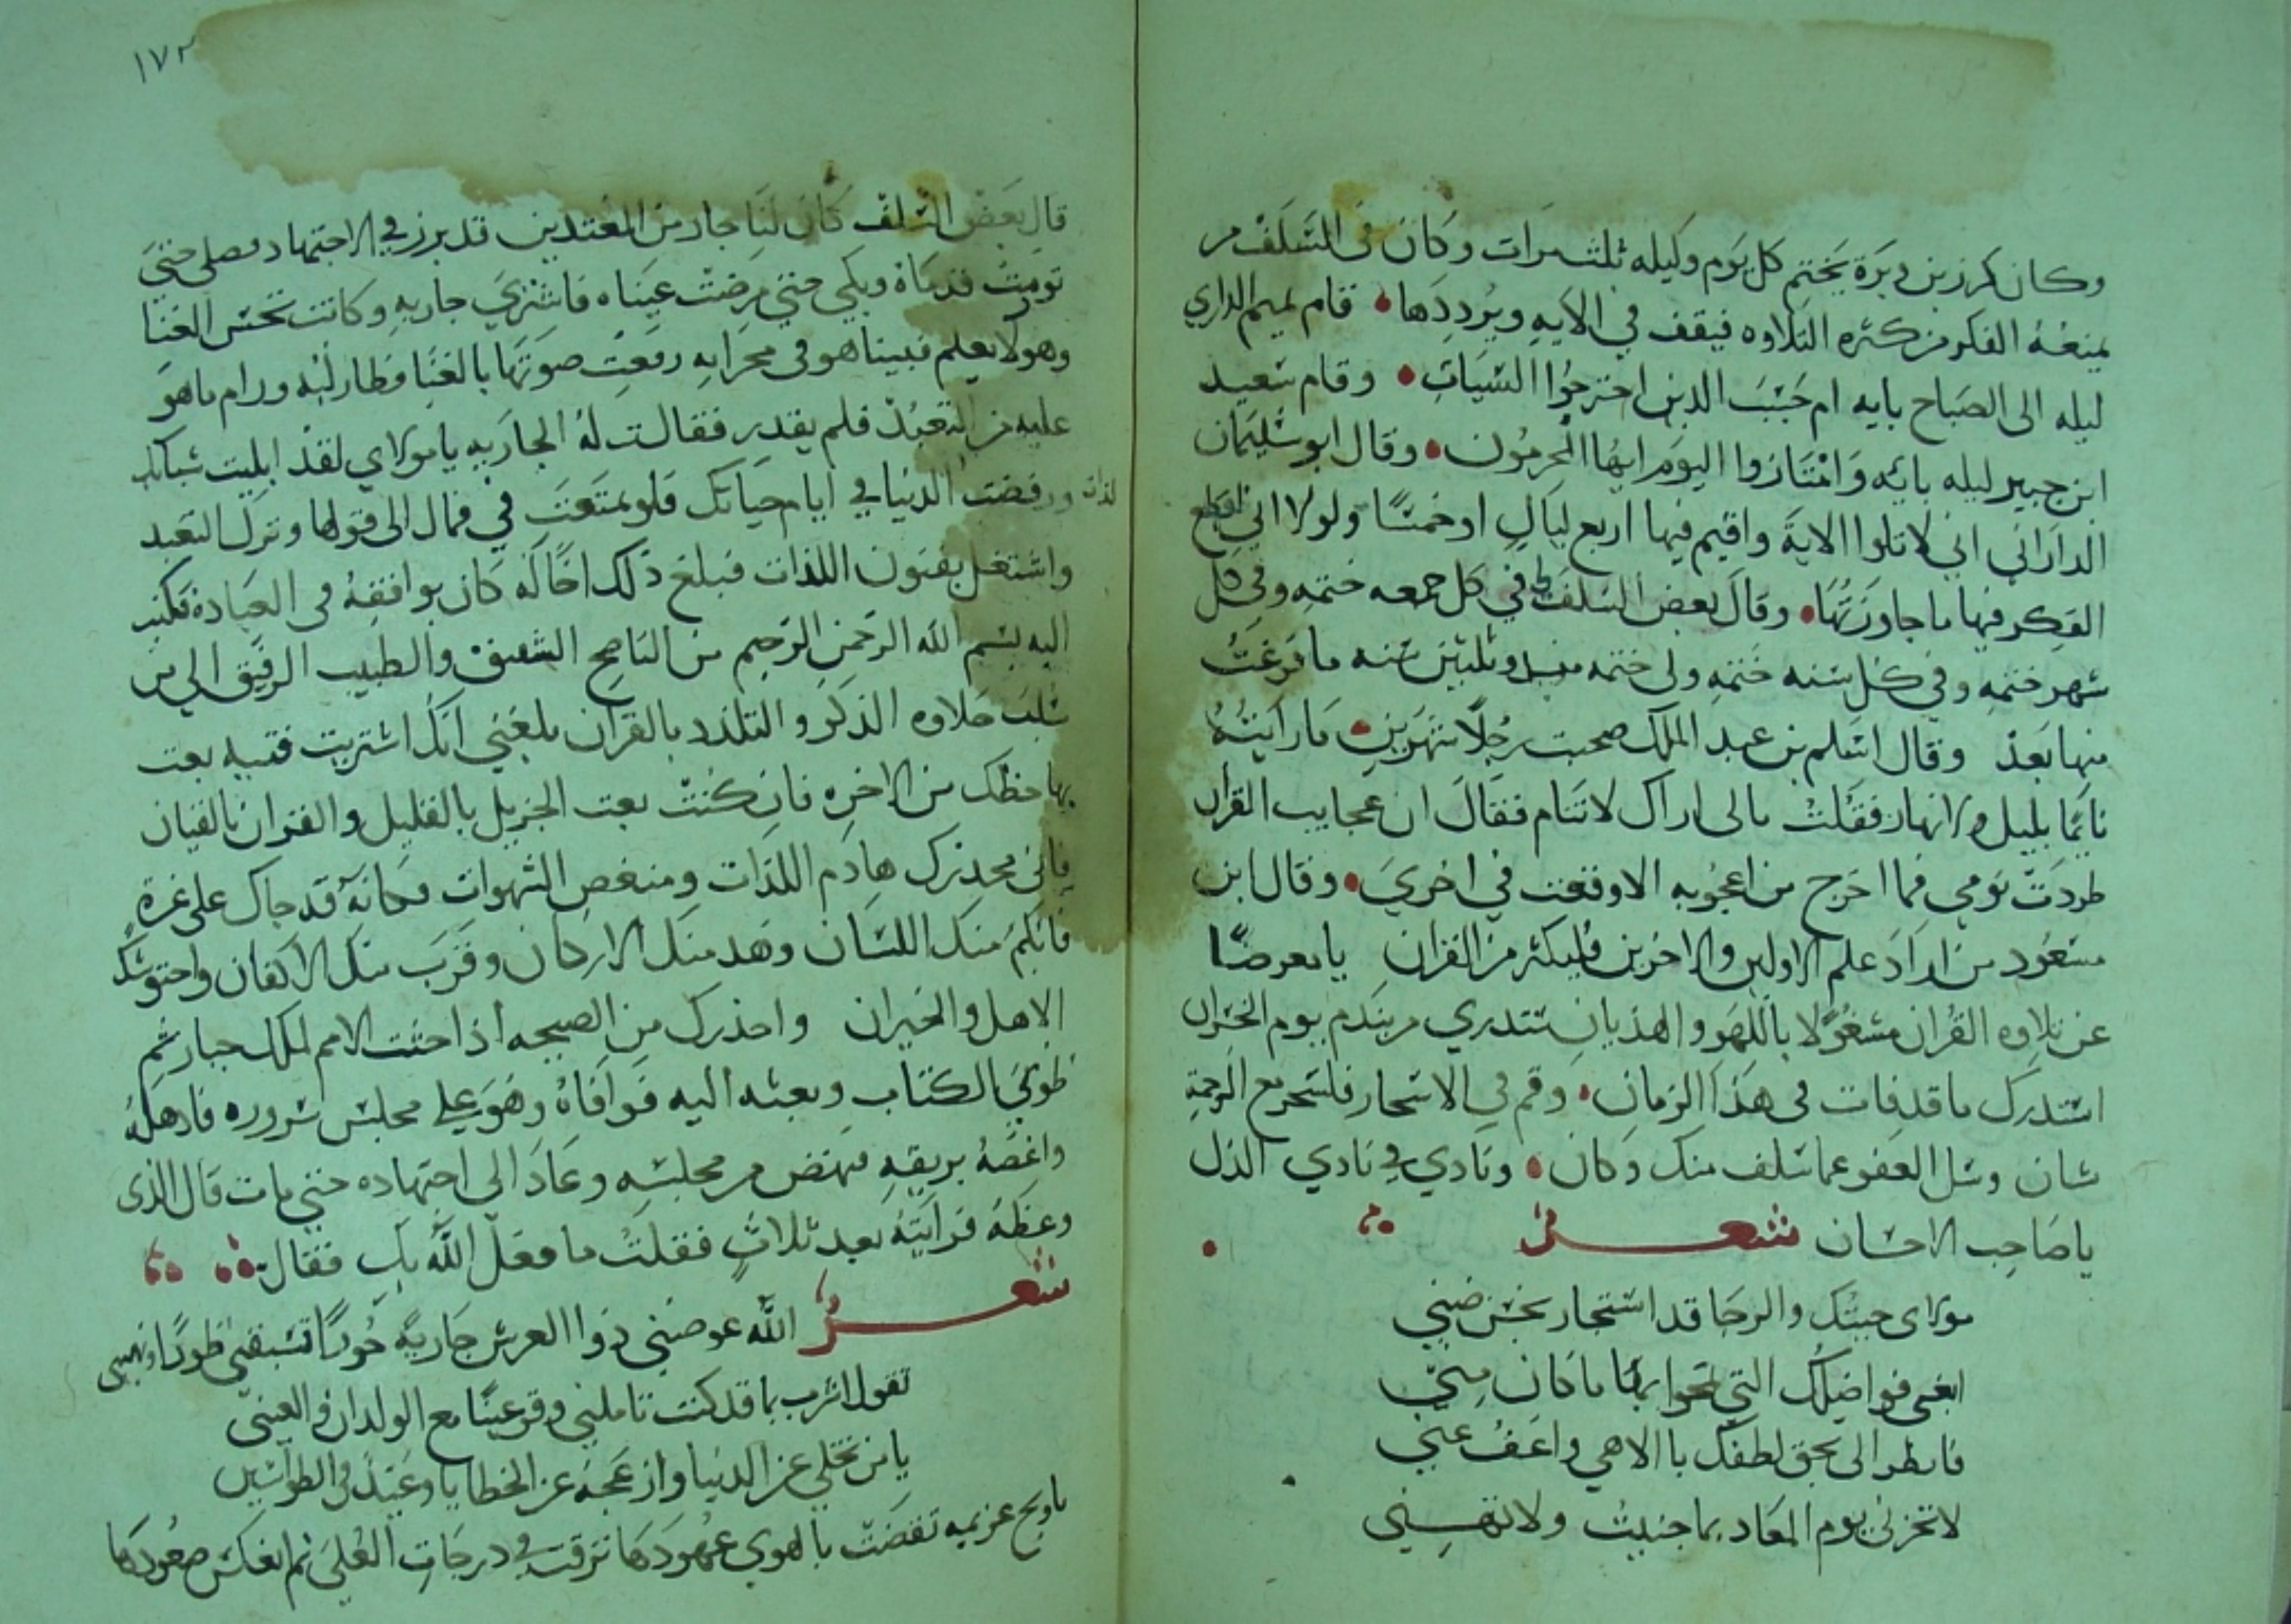 وكان كرز بن وبرة يختم كل يوم وليله ثلث مرات وكان في السلف من
يمنعه الفكر من كثره التلاوه فيقف في الايه ويرددها • قام تميم الداري
ليله الى الصباح بايه ام حسب الذين اجترحوا السيات • وقام سعيد
ابن جبير ليله بايه وامتازوا اليوم ايها المجرمون • وقال ابو سليمان
الداراني اني لاتلوا الاية واقيم فيها اربع ليال او خمسا ولولا اني اقطع
الفكر فيها ما جاوزتها • وقال بعض السلف لي في كل جمعه ختمه وفي كل
شهر ختمه وفي كل سنه ختمه ولي ختمه منذ وثلثين سنه ما فرغت
منها بعد وقال اسلم بن عبد الملك صحبت رجلا شهرين • ما رايته
نايما بليل ولا نهار فقلت مالى اراك لا تنام فقال ان عجايب القران
طردت نومي فما اخرج من اعجوبه الا وقعت في اخري • وقال ابن
مسعود من اراد علم الاولين والاخرين فليكثر من القران يا معرضا
عن تلاوه القران مشغولا باللهو والهذيان ستدري من يندم يوم الخسران
استدرك ما قد فات في هذا الزمان • وقم في الاسحار فلسحر مع الرحمة
شان وسل العفو عما سلف منك وكان • ونادي في نادي الذل
يا صاحب الاحسان شعر
مولاى جيتك والرجا قد استجار بحسن ضني
ابغى فواضلك التي تمحوا بها ما كان مني
فانظر الى بحق لطفك يا الاهي واعف عني
لا تخزني يوم المعاد بما جنيت ولا تهني
١٧٢
قال بعض السلف كان لنا جار من المعتدين قد برز في الاجتهاد فصلى حتى
تورمت قدماه وبكي حتي مرضت عيناه فاشتري جاريه وكانت تحسن الغنا
وهو لا يعلم فبينا هو في محرابه رفعت صوتها بالغنا فطار لبه ورام ما هو
عليه من التعبد فلم يقدر فقالت له الجاريه يا مولاي لقد ابليت شبابك
ورفضت لذات الدنيا في ايام حياتك فلو تمتعت في فمال الى قولها وترك التعبد
واشتغل بفنون اللذات فبلغ ذلك اخا له كان يوافقه في العبادة فكتب
اليه بسم الله الرحمن الرحيم من الناصح الشفيق والطبيب الرفيق الي من
سلب حلاوه الذكر والتلذذ بالقران بلغني انك اشتريت قتيبه بعت
بها حظك من الاخره فان كنت بعت الجزيل بالقليل والقران بالقيان
فاني محذرك هادم اللذات ومنغص الشهوات فكانه قد جاك على غرة
فابكم منك اللسان وهد منك الاركان وقرب منك الاكفان واحتوشك
الاهل والجيران واحذرك من الصيحه اذا جثت الامم لملك جبار ثم
طوي الكتاب وبعثه اليه فوافاه وهو علي مجلس سروره فادهله
واغصه بريقه فنهض من مجلسه وعاد الي اجتهاده حتي مات قال الذي
وعظه فرايته بعد ثلاث فقلت ما فعل الله بك فقال
شعر الله عوضني ذوا العرش جارية حورا تسقني طورا وتهنيني
تقول اشرب بما قد كنت تاملني وقر عينا مع الولدان والعيني
يا من تخلي عن الدنيا وازعجه عن الخطايا وعيد في الطواسين
يا ويح عزيمه تقضت بالهوي عهودها ترقت في درجات العلى ثم انعكس صعودها